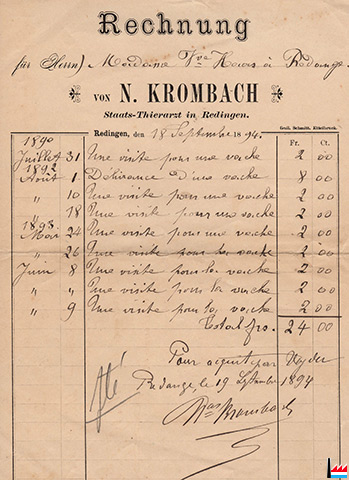 Rechnung
für Herrn) Madame Vve Kears à Redange
VON N. KROMBACH
Staats-Thierarzt in Redingen.
Redingen, den 18 September 1894.
Gust. Schmitt, Ettelbrück.
Fr. Ct.
1890
Juillet 31 Une visite pour une vache 2 00
1892
Août 1 Délivrance d'une vache 8 00
" 10 Une visite pour une vache 2 00
18 Une visite pour une vache 2 00
1893
Mai 24 Une visite pour une vache 2 00
" 26 Une visite pour la vache 2 00
Juin 8 Une visite pour la vache 2 00
" " Une visite pour la vache 2 00
" 9 Une visite pour la vache 2 00
Total frs. 24 00
Pour acquit par
Redange, le 19 Septembre 1894
Krombach